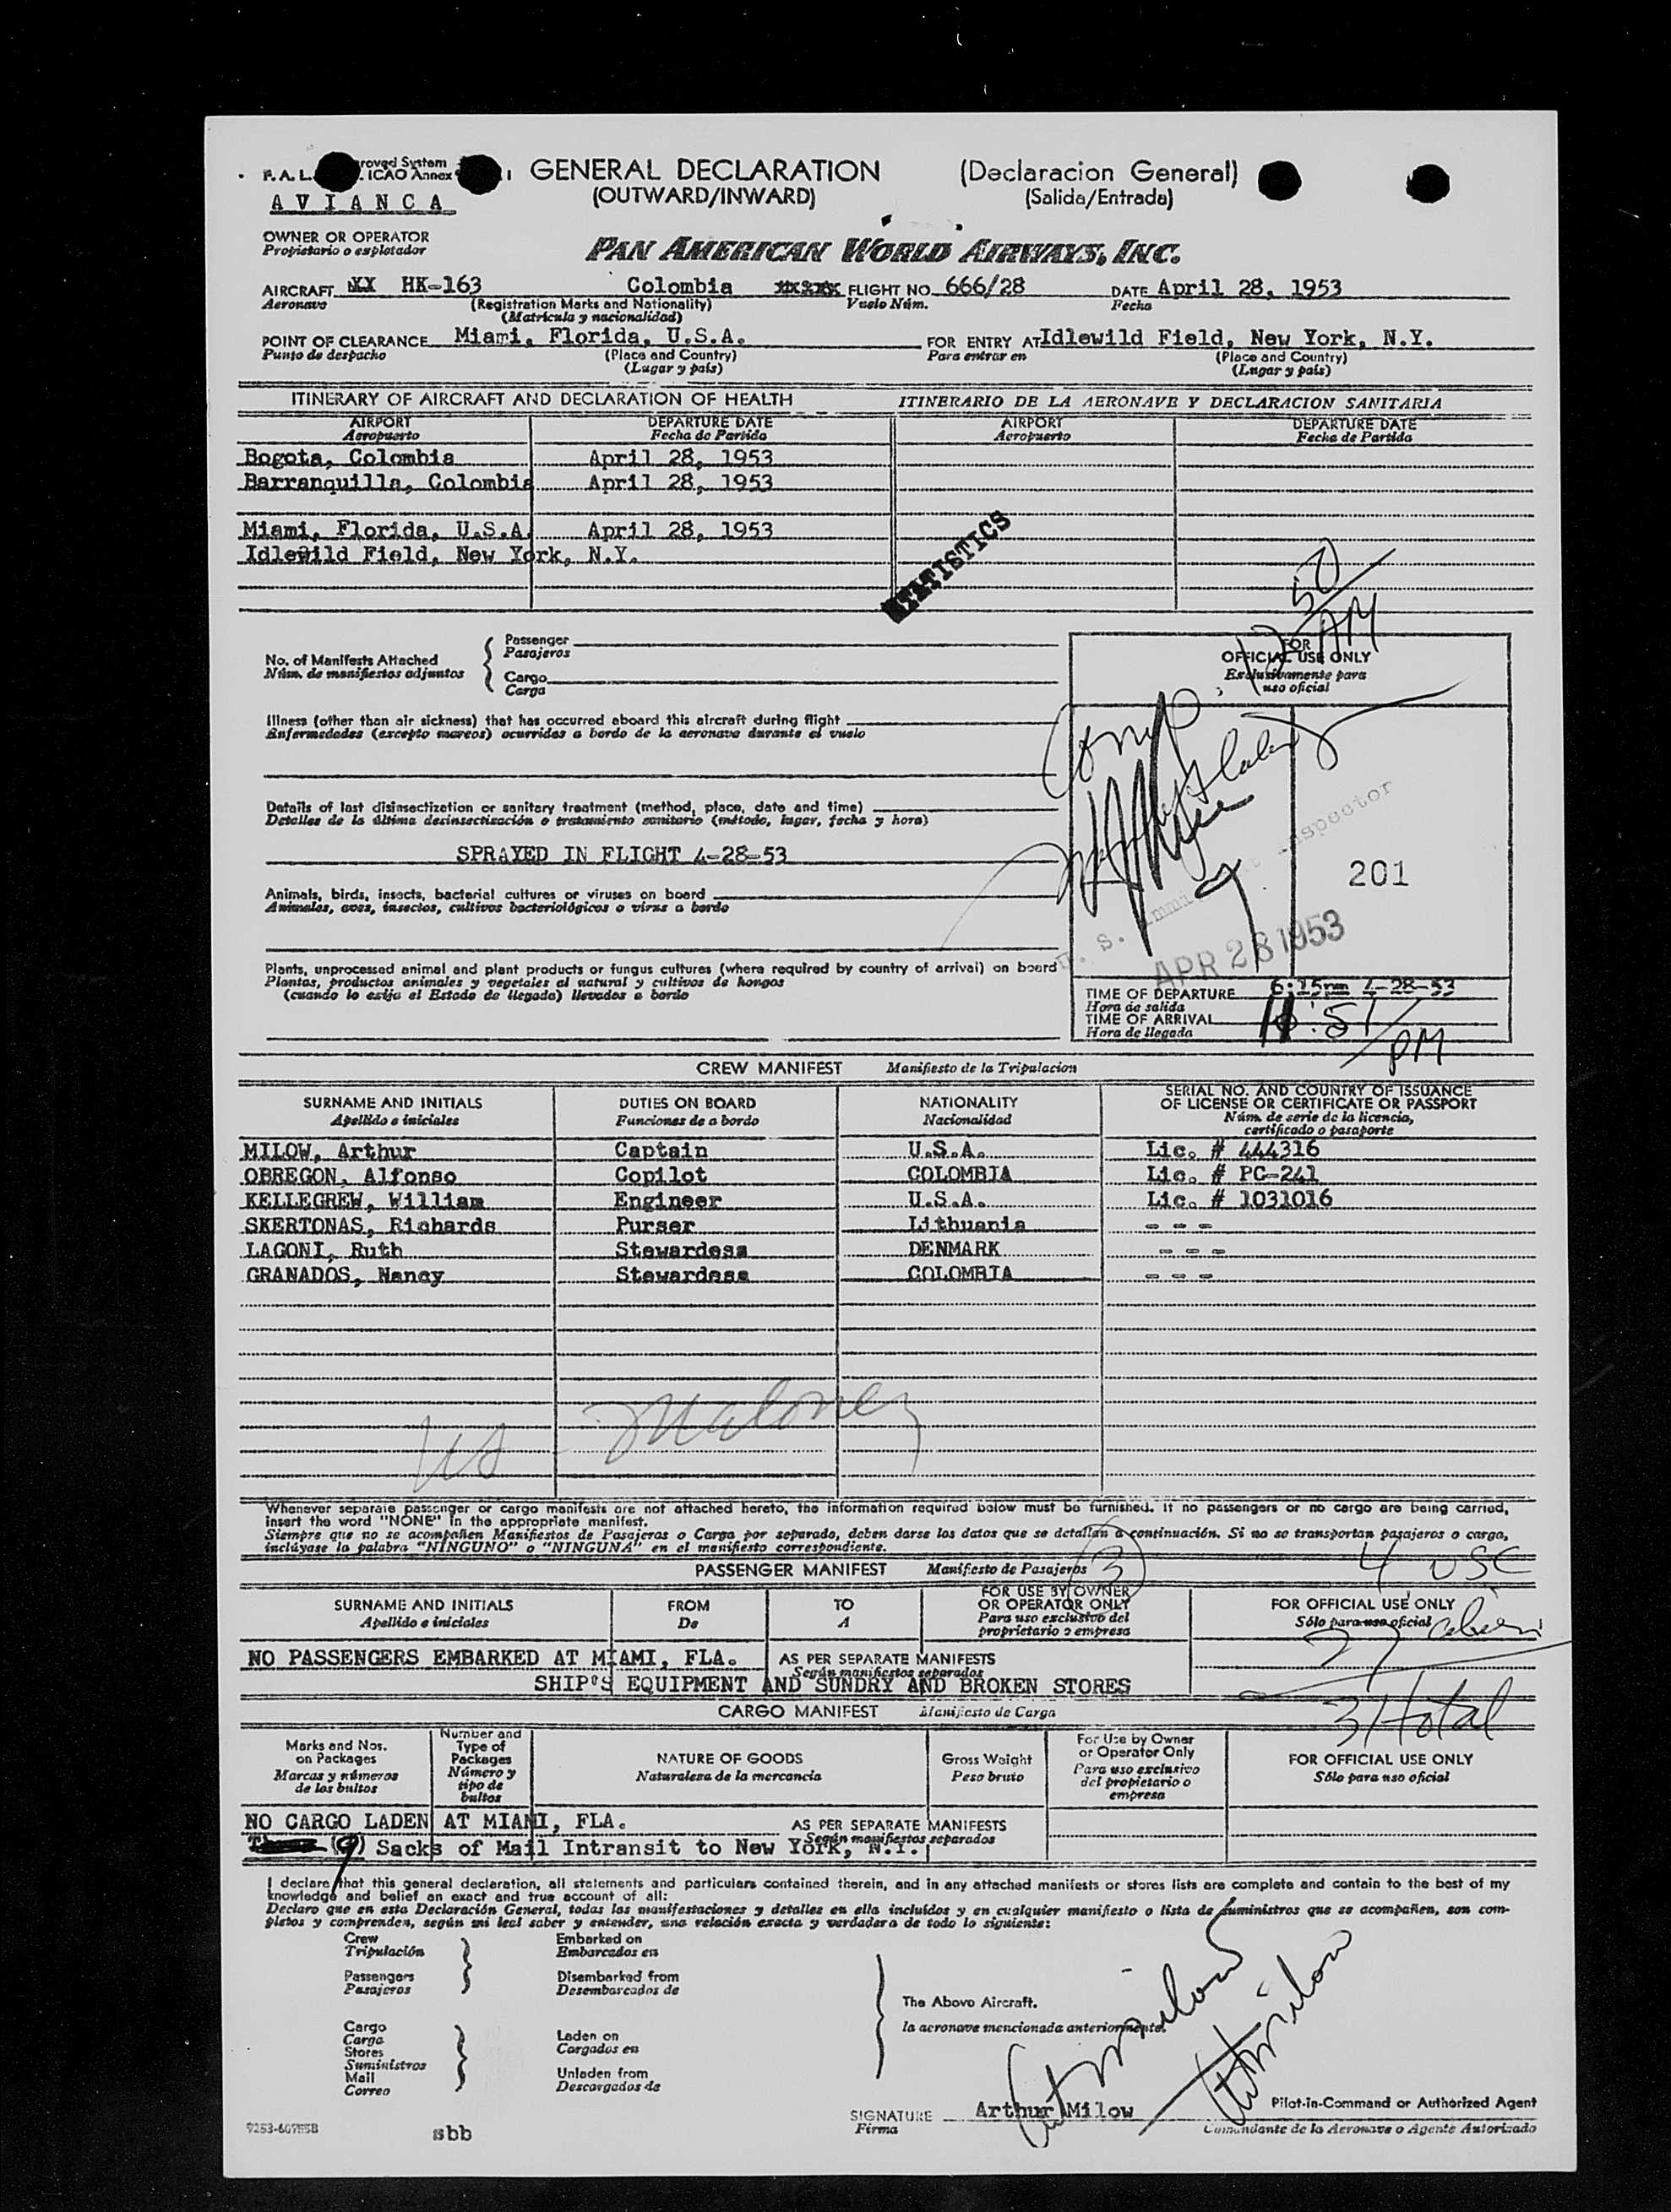 F.A.L. roved System
ICAO Annex
GENERAL DECLARATION (Declaracion General)
(OUTWARD/INWARD) (Salida/Entrada)
AVIANCA
OWNER OR OPERATOR
Propietario o explotador
PAN AMERICAN WORLD AIRWAYS, INC.
AIRCRAFT HK-163 Colombia FLIGHT NO. 666/28 DATE April 28, 1953
Aeronave (Registration Marks and Nationality) Vuelo Núm. Fecha
(Matrícula y nacionalidad)
POINT OF CLEARANCE Miami, Florida, U.S.A. FOR ENTRY AT Idlewild Field, New York, N.Y.
Punto de despacho (Place and Country) Para entrar en (Place and Country)
(Lugar y país) (Lugar y país)
ITINERARY OF AIRCRAFT AND DECLARATION OF HEALTH ITINERARIO DE LA AERONAVE Y DECLARACION SANITARIA
AIRPORT DEPARTURE DATE AIRPORT DEPARTURE DATE
Aeropuerto Fecha de Partida Aeropuerto Fecha de Partida
Bogota, Colombia April 28, 1953
Barranquilla, Colombia April 28, 1953
Miami, Florida, U.S.A. April 28, 1953
Idlewild Field, New York, N.Y.
STATISTICS
12 50 AM
No. of Manifests Attached
Núm. de manifiestos adjuntos
Passenger
Pasajeros
Cargo
Carga
FOR
OFFICIAL USE ONLY
Exclusivamente para
uso oficial
Illness (other than air sickness) that has occurred aboard this aircraft during flight
Enfermedades (excepto mareos) ocurridas a bordo de la aeronave durante el vuelo
Details of last disinsectization or sanitary treatment (method, place, date and time)
Detalles de la última desinsectización o tratamiento sanitario (método, lugar, fecha y hora)
SPRAYED IN FLIGHT 4-28-53
201
Animals, birds, insects, bacterial cultures or viruses on board
Animales, aves, insectos, cultivos bacteriológicos o virus a bordo
APR 28 1953
Plants, unprocessed animal and plant products or fungus cultures (where required by country of arrival) on board
Plantas, productos animales y vegetales al natural y cultivos de hongos
(cuando lo exija el Estado de llegada) llevados a bordo
TIME OF DEPARTURE 6:15pm 4-28-53
Hora de salida
TIME OF ARRIVAL 11:51 PM
Hora de llegada
CREW MANIFEST Manifiesto de la Tripulacion
SURNAME AND INITIALS DUTIES ON BOARD NATIONALITY SERIAL NO. AND COUNTRY OF ISSUANCE
OF LICENSE OR CERTIFICATE OR PASSPORT
Apellido e iniciales Funciones de a bordo Nacionalidad Núm. de serie de la licencia,
certificado o pasaporte
MILOW, Arthur Captain U.S.A. Lic. # 444316
OBREGON, Alfonso Copilot COLOMBIA Lic. # PC-241
KELLEGREW, William Engineer U.S.A. Lic. # 1031016
SKERTONAS, Richards Purser Lithuania - - -
LAGONI, Ruth Stewardess DENMARK - - -
GRANADOS, Nancy Stewardess COLOMBIA - - -
Maloney
Whenever separate passenger or cargo manifests are not attached hereto, the information required below must be furnished. If no passengers or no cargo are being carried,
insert the word "NONE" in the appropriate manifest.
Siempre que no se acompañen Manifiestos de Pasajeros o Carga por separado, deben darse los datos que se detallan a continuación. Si no se transportan pasajeros o carga,
inclúyase la palabra "NINGUNO" o "NINGUNA" en el manifiesto correspondiente.
PASSENGER MANIFEST Manifiesto de Pasajeros (3) 4 USC
SURNAME AND INITIALS FROM TO FOR USE BY OWNER
OR OPERATOR ONLY FOR OFFICIAL USE ONLY
Apellido e iniciales De A Para uso exclusivo del
propietario o empresa Sólo para uso oficial
27 alien
NO PASSENGERS EMBARKED AT MIAMI, FLA. AS PER SEPARATE MANIFESTS
Según manifiestos separados
SHIP'S EQUIPMENT AND SUNDRY AND BROKEN STORES
31 total
CARGO MANIFEST Manifiesto de Carga
Marks and Nos.
on Packages
Marcas y números
de los bultos
Number and
Type of
Packages
Número y
tipo de
bultos
NATURE OF GOODS
Naturaleza de la mercancía
Gross Weight
Peso bruto
For Use by Owner
or Operator Only
Para uso exclusivo
del propietario o
empresa
FOR OFFICIAL USE ONLY
Sólo para uso oficial
NO CARGO LADEN AT MIAMI, FLA. AS PER SEPARATE MANIFESTS
Según manifiestos separados
(9) Sacks of Mail Intransit to New York, N.Y.
I declare that this general declaration, all statements and particulars contained therein, and in any attached manifests or stores lists are complete and contain to the best of my
knowledge and belief an exact and true account of all:
Declaro que en esta Declaración General, todas las manifestaciones y detalles en ella incluídos y en cualquier manifiesto o lista de suministros que se acompañen, son com-
pletos y comprenden, según mi leal saber y entender, una relación exacta y verdadera de todo lo siguiente:
Crew
Tripulación
Passengers
Pasajeros
Embarked on
Embarcados en
Disembarked from
Desembarcados de
Cargo
Carga
Stores
Suministros
Mail
Correo
Laden on
Cargados en
Unladen from
Descargados de
The Above Aircraft.
la aeronave mencionada anteriormente.
SIGNATURE Arthur Milow
Firma
Pilot-in-Command or Authorized Agent
Comandante de la Aeronave o Agente Autorizado
sbb